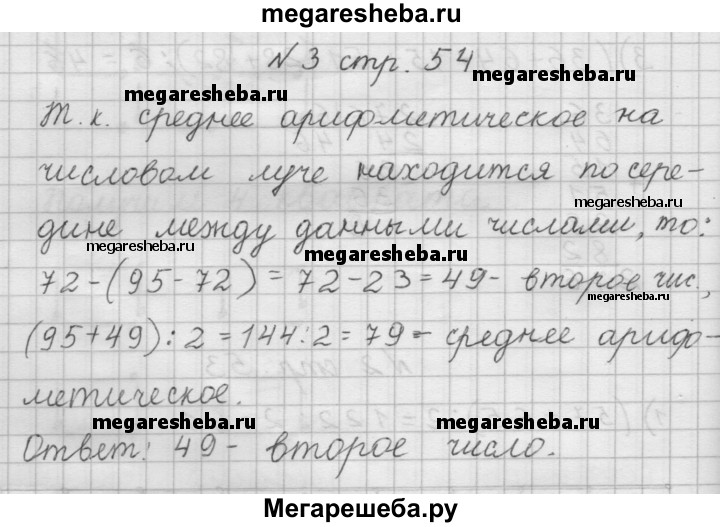 megaresheba.ru
N 3 стр. 54
megaresheba.ru
megaresheba.ru
Т.к. среднее арифметическое на
числовом луче находится посере-
дине между данными числами, то:
megaresheba.ru
megaresheba.ru
72-(95-72)=72-23=49- второе чис.,
megaresheba.ru
(95+49):2=144:2=79- среднее арифо-
метическое.
megaresheba.ru
megaresheba.ru
Ответ: 49- второе число.
Мегарешеба.ру